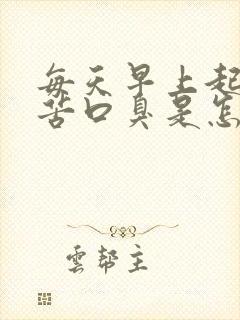 每天早上起
苦口臭是怎
雲幫主